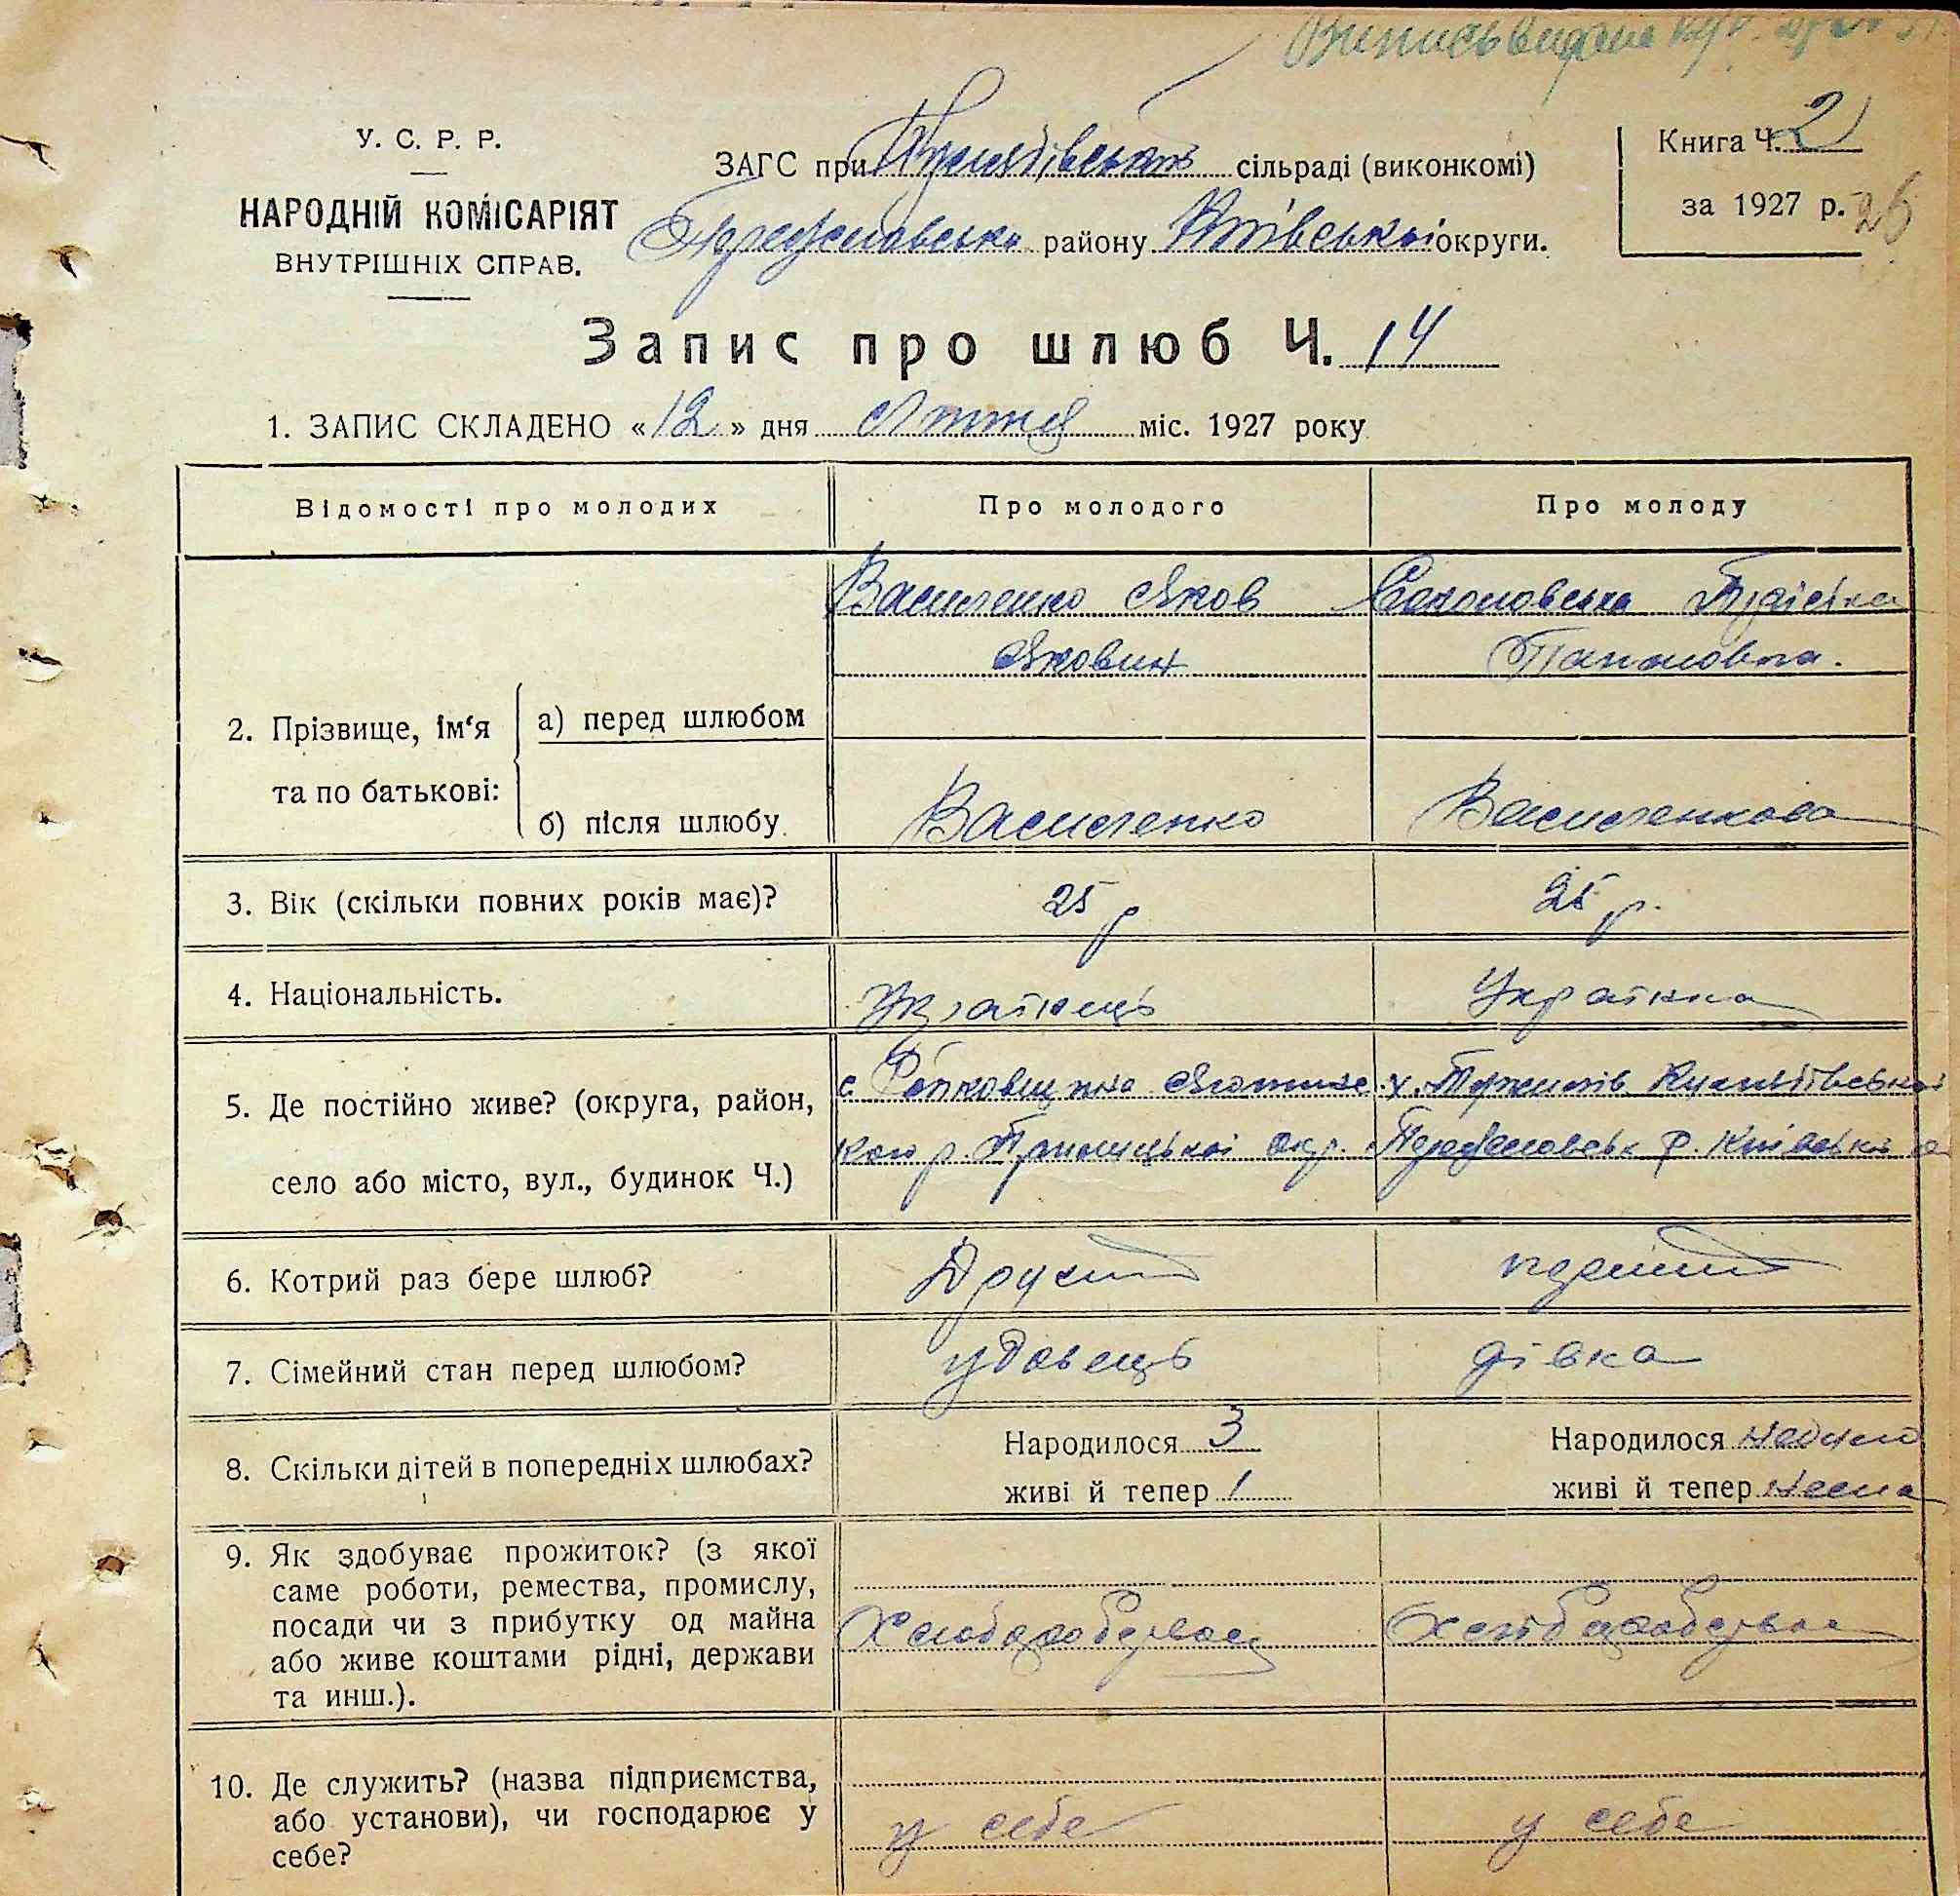 У. С. Р. Р.
НАРОДНІЙ КОМІСАРІЯТ
ВНУТРІШНІХ СПРАВ.
ЗАГС при сільраді (виконкомі)
району Київської округи.
Книга Ч. 2
за 1927 р. 26
Запис про шлюб Ч. 14
1. ЗАПИС СКЛАДЕНО «12» дня міс. 1927 року
Відомості про молодих
Про молодого
Про молоду
2. Прізвище, ім‘я
та по батькові:
а) перед шлюбом
Василенко Яков
Якович
Соколовська
б) після шлюбу
Василенко
Василенкова
3. Вік (скільки повних років має)?
25 р
25 р.
4. Національність.
Українець
Українка
5. Де постійно живе? (округа, район,
село або місто, вул., будинок Ч.)
с
кого р. Прилуцької окр.
х.
р. Київської
6. Котрий раз бере шлюб?
Другий
перший
7. Сімейний стан перед шлюбом?
удовець
дівка
8. Скільки дітей в попередніх шлюбах?
Народилося 3
живі й тепер 1
Народилося не було
живі й тепер нема
9. Як здобуває прожиток? (з якої
саме роботи, ремества, промислу,
посади чи з прибутку од майна
або живе коштами рідні, держави
та инш.).
10. Де служить? (назва підприємства,
або установи), чи господарює у
себе?
у себе
у себе